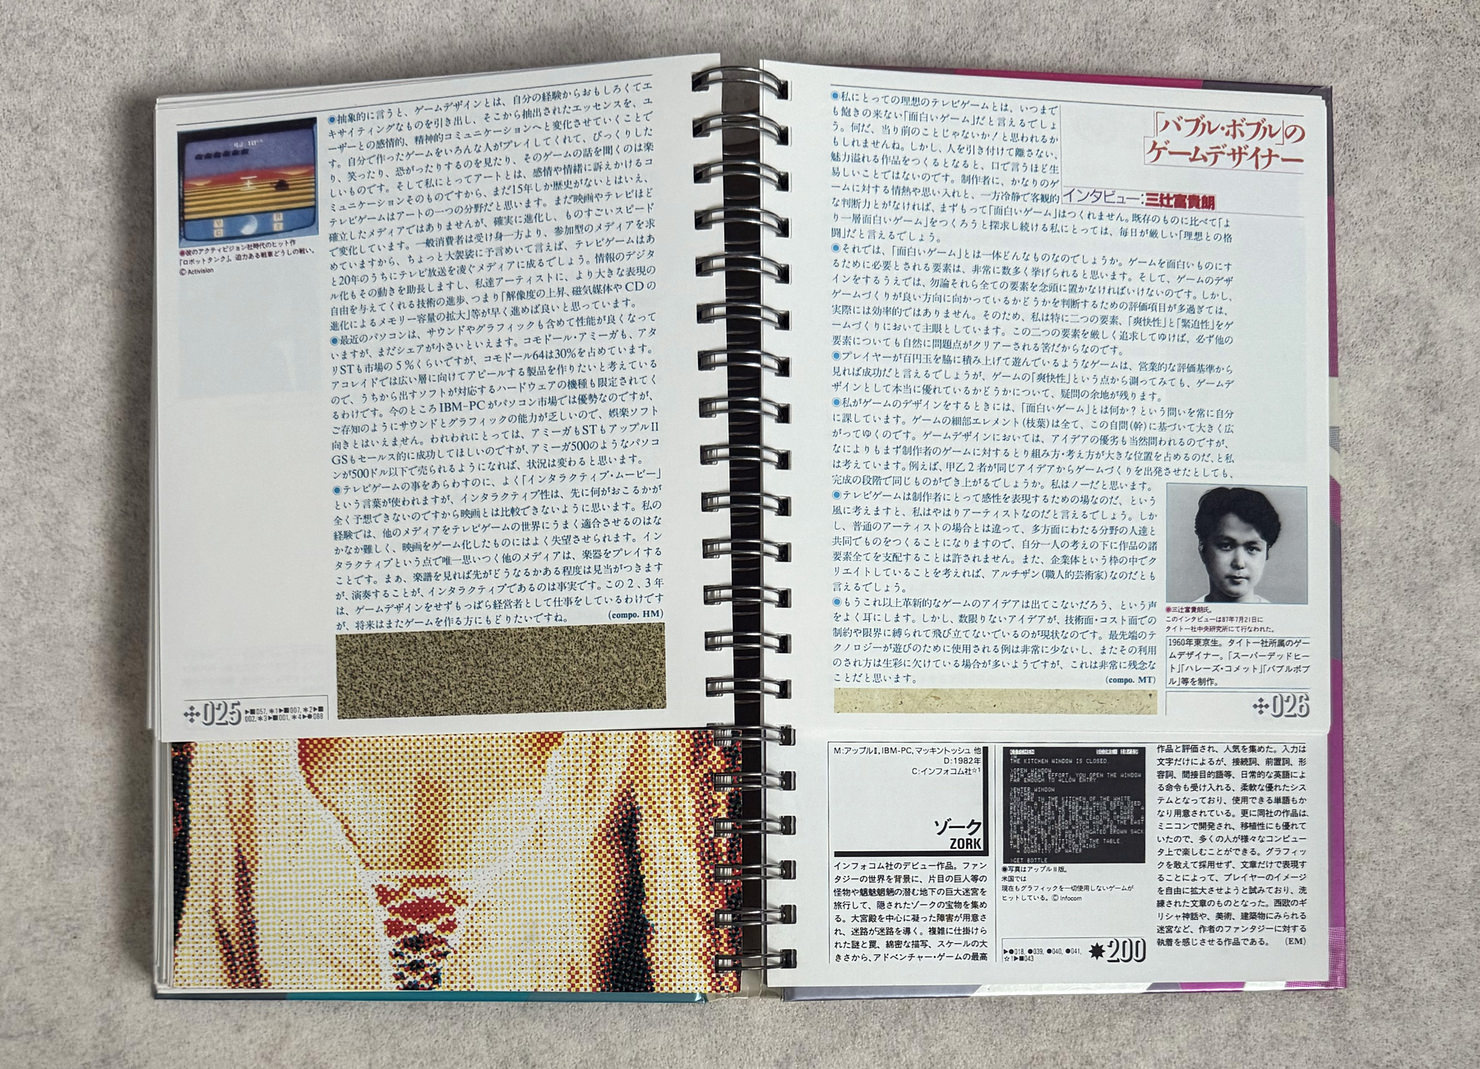 ●彼のアクティビジョン社時代のヒット作
「ロボットタンク」。迫力ある戦車どうしの戦い。
Ⓒ Activision
●抽象的に言うと、ゲームデザインとは、自分の経験からおもしろくてエ
キサイティングなものを引き出し、そこから抽出されたエッセンスを、ユ
ーザーとの感情的、精神的コミュニケーションへと変化させていくことで
す。自分で作ったゲームをいろんな人がプレイしてくれて、びっくりした
り、笑ったり、恐がったりするのを見たり、そのゲームの話を聞くのは楽
しいものです。そして私にとってアートとは、感情や情緒に訴えかけるコ
ミュニケーションそのものですから、まだ15年しか歴史がないとはいえ、
テレビゲームはアートの一つの分野だと思います。まだ映画やテレビほど
確立したメディアではありませんが、確実に進化し、ものすごいスピード
で変化しています。一般消費者は受け身一方より、参加型のメディアを求
めていますから、ちょっと大袈裟に予言めいて言えば、テレビゲームはあ
と20年のうちにテレビ放送を凌ぐメディアに成るでしょう。情報のデジタ
ル化もその動きを助長しますし、私達アーティストに、より大きな表現の
自由を与えてくれる技術の進歩、つまり「解像度の上昇、磁気媒体やCDの
進化によるメモリー容量の拡大」等が早く進めば良いと思っています。
●最近のパソコンは、サウンドやグラフィックも含めて性能が良くなって
いますが、まだシェアが小さいといえます。コモドール・アミーガも、アタ
リSTも市場の5%くらいですが、コモドール64は30%を占めています。
アコレイドでは広い層に向けてアピールする製品を作りたいと考えている
ので、うちから出すソフトが対応するハードウェアの機種も限定されてく
るわけです。今のところIBM-PCがパソコン市場では優勢なのですが、
ご存知のようにサウンドとグラフィックの能力が乏しいので、娯楽ソフト
向きとはいえません。われわれにとっては、アミーガもSTもアップルⅡ
GSもセールス的に成功してほしいのですが、アミーガ500のようなパソコ
ンが500ドル以下で売られるようになれば、状況は変わると思います。
●テレビゲームの事をあらわすのに、よく「インタラクティブ・ムービー」
という言葉が使われますが、インタラクティブ性は、先に何がおこるかが
全く予想できないのですから映画とは比較できないように思います。私の
経験では、他のメディアをテレビゲームの世界にうまく適合させるのはな
かなか難しく、映画をゲーム化したものにはよく失望させられます。イン
タラクティブという点で唯一思いつく他のメディアは、楽器をプレイする
ことです。まあ、楽譜を見れば先がどうなるかある程度は見当がつきます
が、演奏することが、インタラクティブであるのは事実です。この2、3年
は、ゲームデザインをせずもっぱら経営者として仕事をしているわけです
が、将来はまたゲームを作る方にもどりたいですね。 (compo. HM)
025
▶■057, *1▶■007, *2▶■
002, *3▶■001, *4▶●088
「バブル・ボブル」の
ゲームデザイナー
インタビュー:三辻富貴朗
●私にとっての理想のテレビゲームとは、いつまで
も飽きの来ない「面白いゲーム」だと言えるでしょ
う。何だ、当り前のことじゃないか!と思われるか
もしれませんね。しかし、人を引き付けて離さない、
魅力溢れる作品をつくるとなると、口で言うほど生
易しいことではないのです。制作者に、かなりのゲ
ームに対する情熱や思い入れと、一方冷静で客観的
な判断力とがなければ、まずもって「面白いゲーム」はつくれません。既存のものに比べて「よ
り一層面白いゲーム」をつくろうと探求し続ける私にとっては、毎日が厳しい「理想との格
闘」だと言えるでしょう。
●それでは、「面白いゲーム」とは一体どんなものなのでしょうか。ゲームを面白いものにす
るために必要とされる要素は、非常に数多く挙げられると思います。そして、ゲームのデザ
インをするうえでは、勿論それら全ての要素を念頭に置かなければいけないのです。しかし、
ゲームづくりが良い方向に向かっているかどうかを判断するための評価項目が多過ぎては、
実際には効率的ではありません。そのため、私は特に二つの要素、「爽快性」と「緊迫性」をゲ
ームづくりにおいて主眼としています。この二つの要素を厳しく追求してゆけば、必ず他の
要素についても自然に問題点がクリアーされる筈だからなのです。
●プレイヤーが百円玉を脇に積み上げて遊んでいるようなゲームは、営業的な評価基準から
見れば成功だと言えるでしょうが、ゲームの「爽快性」という点から測ってみても、ゲームデ
ザインとして本当に優れているかどうかについて、疑問の余地が残ります。
●私がゲームのデザインをするときには、「面白いゲーム」とは何か?という問いを常に自分
に課しています。ゲームの細部エレメント(枝葉)は全て、この自問(幹)に基づいて大きく広
がってゆくのです。ゲームデザインにおいては、アイデアの優劣も当然問われるのですが、
なによりもまず制作者のゲームに対するとり組み方・考え方が大きな位置を占めるのだ、と私
は考えています。例えば、甲乙2者が同じアイデアからゲームづくりを出発させたとしても、
完成の段階で同じものができ上がるでしょうか。私はノーだと思います。
●テレビゲームは制作者にとって感性を表現するための場なのだ、という
風に考えますと、私はやはりアーティストなのだと言えるでしょう。しか
し、普通のアーティストの場合とは違って、多方面にわたる分野の人達と
共同でものをつくることになりますので、自分一人の考えの下に作品の諸
要素全てを支配することは許されません。また、企業体という枠の中でク
リエイトしていることを考えれば、アルチザン(職人的芸術家)なのだとも
言えるでしょう。
●もうこれ以上革新的なゲームのアイデアは出てこないだろう、という声
をよく耳にします。しかし、数限りないアイデアが、技術面・コスト面での
制約や限界に縛られて飛び立てないでいるのが現状なのです。最先端のテ
クノロジーが遊びのために使用される例は非常に少ないし、またその利用
のされ方は生彩に欠けている場合が多いようですが、これは非常に残念な
ことだと思います。 (compo. MT)
●三辻富貴朗氏。
このインタビューは87年7月21日に
タイトー社中央研究所にて行なわれた。
1960年東京生。タイトー社所属のゲー
ムデザイナー。「スーパーデッドヒー
ト」「ハレーズ・コメット」「バブルボブ
ル」等を制作。
026
M:アップルⅡ, IBM-PC, マッキントッシュ 他
D:1982年
C:インフォコム社☆1
ゾーク
ZORK
インフォコム社のデビュー作品。ファン
タジーの世界を背景に、片目の巨人等の
怪物や魑魅魍魎の潜む地下の巨大迷宮を
旅行して、隠されたゾークの宝物を集め
る。大宮殿を中心に凝った障害が用意さ
れ、迷路が迷路を導く。複雑に仕掛けら
れた謎と罠、綿密な描写、スケールの大
きさから、アドベンチャー・ゲームの最高
KITCHEN
THE KITCHEN WINDOW IS CLOSED.
>OPEN WINDOW
WITH GREAT EFFORT, YOU OPEN THE WINDOW
FAR ENOUGH TO ALLOW ENTRY.
>ENTER WINDOW
KITCHEN
>GET BOTTLE
●写真はアップルⅡ版。
米国では
現在もグラフィックを一切使用しないゲームが
ヒットしている。Ⓒ Infocom
▶●018, ●039, ●040, ●041,
☆1▶■043
200
作品と評価され、人気を集めた。入力は
文字だけによるが、接続詞、前置詞、形
容詞、間接目的語等、日常的な英語によ
る命令も受け入れる、柔軟な優れたシス
テムとなっており、使用できる単語もか
なり用意されている。更に同社の作品は、
ミニコンで開発され、移植性にも優れて
いたので、多くの人が様々なコンピュー
タ上で楽しむことができる。グラフィッ
クを敢えて採用せず、文章だけで表現す
ることによって、プレイヤーのイメージ
を自由に拡大させようと試みており、洗
練された文章のものとなった。西欧のギ
リシャ神話や、美術、建築物にみられる
迷宮など、作者のファンタジーに対する
執着を感じさせる作品である。 (EM)